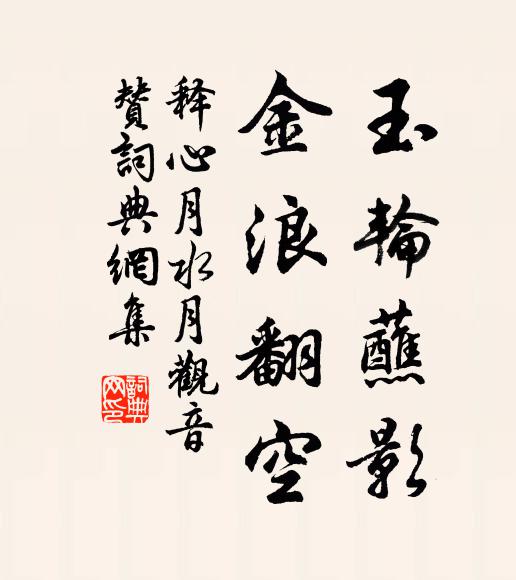 玉輪蘸影
金浪翻空
释心月水月觀音
賛詞典網集
詞典网印